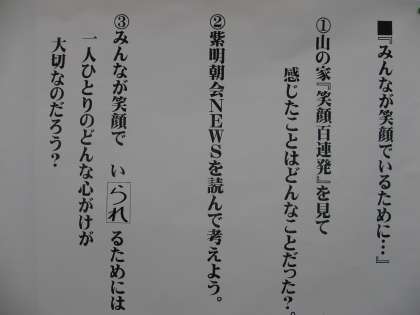 ■『みんなが笑顔でいるために…』
①山の家『笑顔百連発』を見て
感じたことはどんなことだった?。
②紫明朝会NEWSを読んで考えよう。
③みんなが笑顔で いられるためには
一人ひとりのどんな心がけが
大切なのだろう?